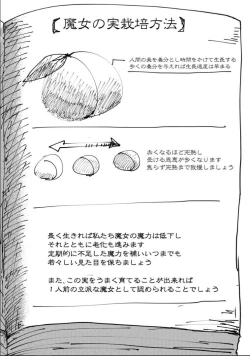 〖魔女の実栽培方法〗
人間の糞を養分とし時間をかけて生長する
多くの養分を与えれば生長速度は早まる
赤くなるほど完熟し
受ける恩恵が多くなります
焦らず完熟まで我慢しましょう
長く生きれば私たち魔女の魔力は低下し
それとともに老化も進みます
定期的に不足した魔力を補いいつまでも
若々しい見た目を保ちましょう
また、この実をうまく育てることが出来れば
1人前の立派な魔女として認められることでしょう